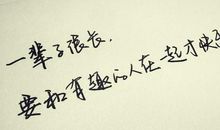 一辈子很长.
要和有趣的人在一起才快